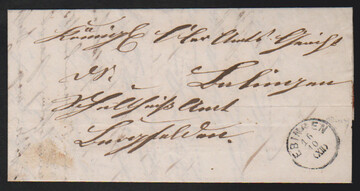 Königl Oberamts Gericht
Balingen
Schultheiß Amt
Burgfelden.
EBINGEN
16
10